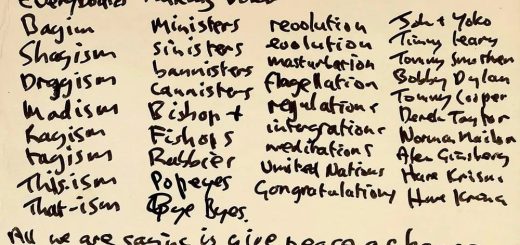 Bagism
Shagism
Draggism
Madism
Ragism
Tagism
This-ism
That-ism
Ministers
sinisters
bannisters
cannisters
Bishop +
Fishops
Popeyes
Bye Byes.
revolution
evolution
masturbation
flagellation
regulations
intergrations
meditations
United Nations
Congratulations
John + Yoko
Timmy Leary
Tommy Smothers
Bobby Dylan
Tommy Cooper
Derek Taylor
Norman Mailer
Alen Ginsberg
Hare Krisna
Hare
All we are saying is give peace a